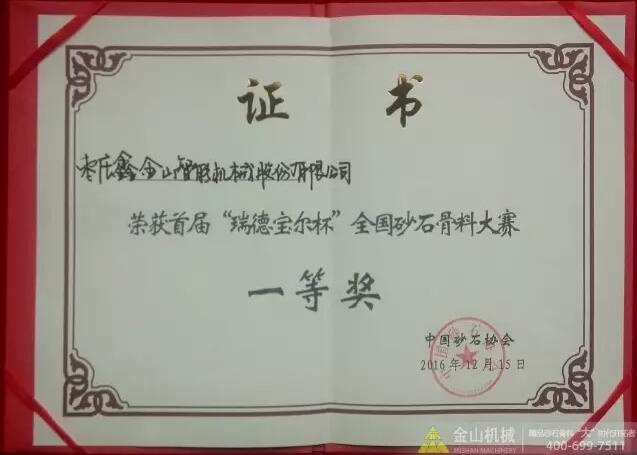 证 书
枣庄鑫金山智能机械股份有限公司
荣获首届“瑞德宝尔杯”全国砂石骨料大赛
一等奖
中国砂石协会
2016年12月15日
金山机械
JINSHAN MACHINERY
精品砂石骨料“大”时代开拓者
400-699-7511